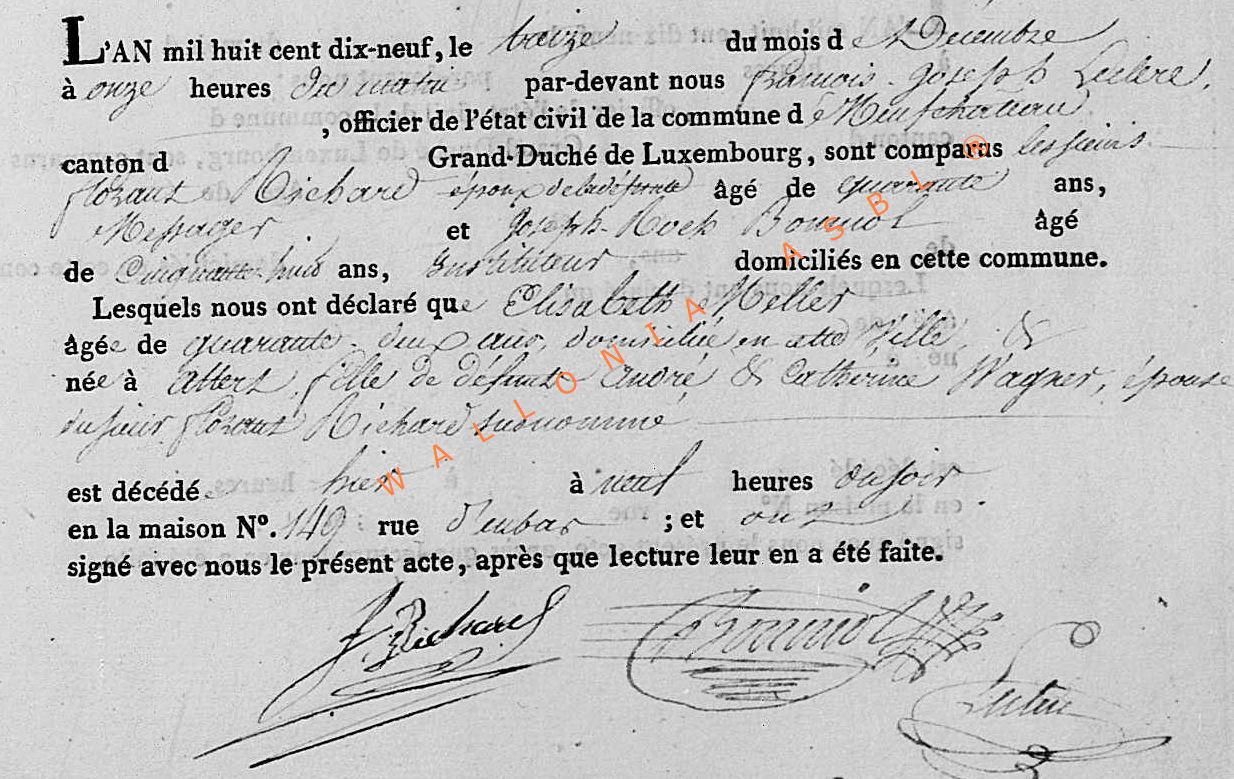 L'AN mil huit cent dix-neuf, le treize du mois de Decembre
à onze heures du matin par-devant nous François-Joseph Leclere,
, officier de l'état civil de la commune de Neufchateau
canton d Grand-Duché de Luxembourg, sont comparus les sieurs
florant Richard époux de la défunte âgé de quarante ans,
Messager. et Joseph-Roch Bouniol âgé
de Cinquante-huit ans, Instituteur domiciliés en cette commune.
Lesquels nous ont déclaré que Elisabeth Meller
âgée de quarante-deux ans, domiciliée en cette Ville &
née à Attert, fille de défunts André & Catherine Wagner, épouse
du sieur florant Richard susnommé
est décédée hier à neuf heures du soir
en la maison Nº. 149 rue ; et ont
signé avec nous le présent acte, après que lecture leur en a été faite.
f Richard Bouniol
WALLONIA ASBL ®